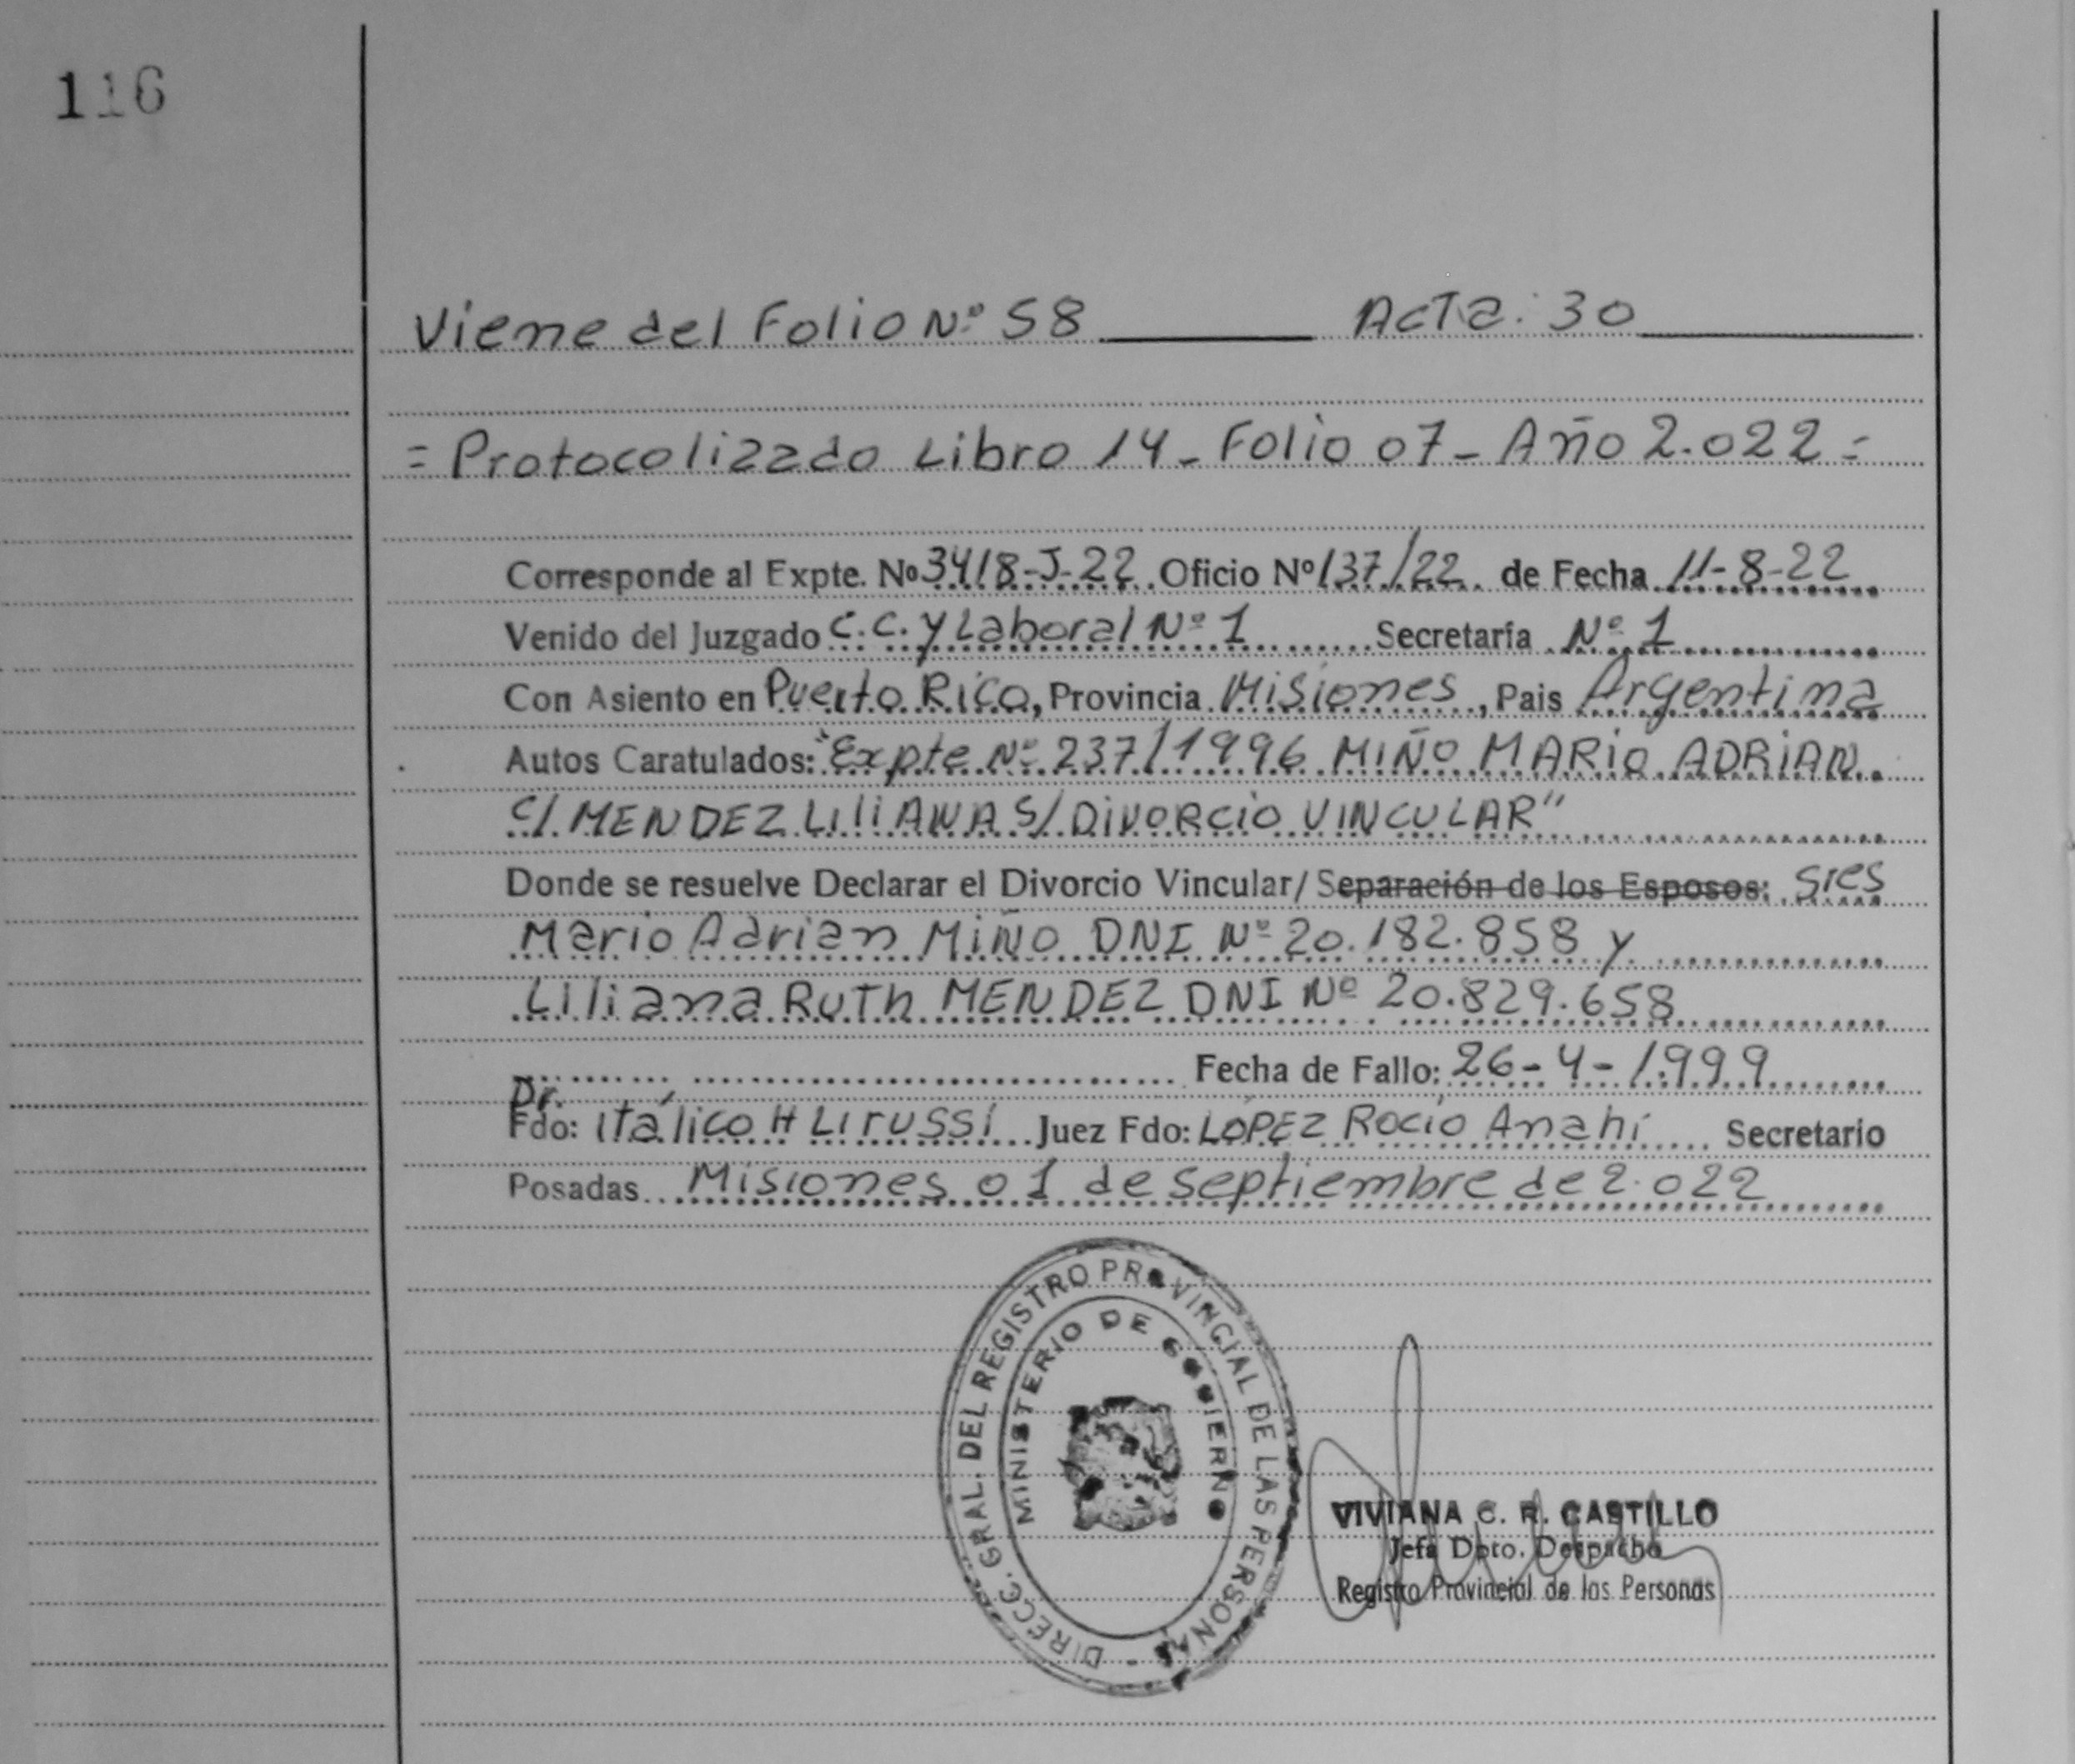 116
Viene del Folio Nº 58 Acta: 30
= Protocolizado Libro 14 - Folio 07 - Año 2.022 =
Corresponde al Expte. Nº 3418-J-22 Oficio Nº 137/22 de Fecha 11-8-22
Venido del Juzgado C.C. y Laboral Nº 1 Secretaría Nº 1
Con Asiento en Puerto Rico, Provincia Misiones, Pais Argentina
Autos Caratulados: "Expte Nº 237/1996 MIÑO MARIO ADRIAN
C/ MENDEZ LILIANA S/ DIVORCIO VINCULAR"
Donde se resuelve Declarar el Divorcio Vincular/ Separación de los Esposos: Sres
Mario Adrian MIÑO DNI Nº 20.182.858 y
Liliana Ruth MENDEZ DNI Nº 20.829.658
Fecha de Fallo: 26-4-1.999
Dr.
Fdo: Itálico H Lirussi Juez Fdo: LÓPEZ Rocio Anahí Secretario
Posadas Misiones 01 de septiembre de 2.022
DIRECC. GRAL. DEL REGISTRO PROVINCIAL DE LAS PERSONAS -
MINISTERIO DE GOBIERNO
VIVIANA C. R. CASTILLO
Jefa Dpto. Despacho
Registro Provincial de las Personas